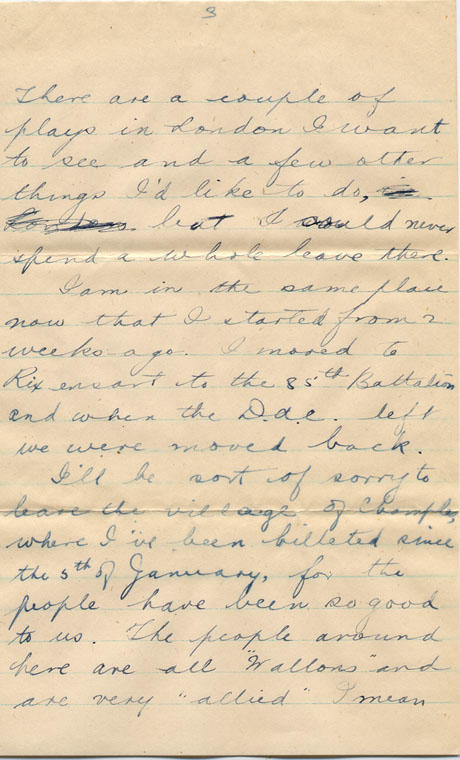 3
There are a couple of
plays in London I want
to see and a few other
things I'd like to do,
but I could never
spend a whole leave there.
I am in the same place
now that I started from 2
weeks ago. I moved to
Rixensart to the 85th Battalion
and when the D.a.c. left
we were moved back.
I'll be sort of sorry to
leave the village of Champles,
where I've been billeted since
the 5th of January, for the
people have been so good
to us. The people around
here are all "Wallons" and
are very "allied" I mean